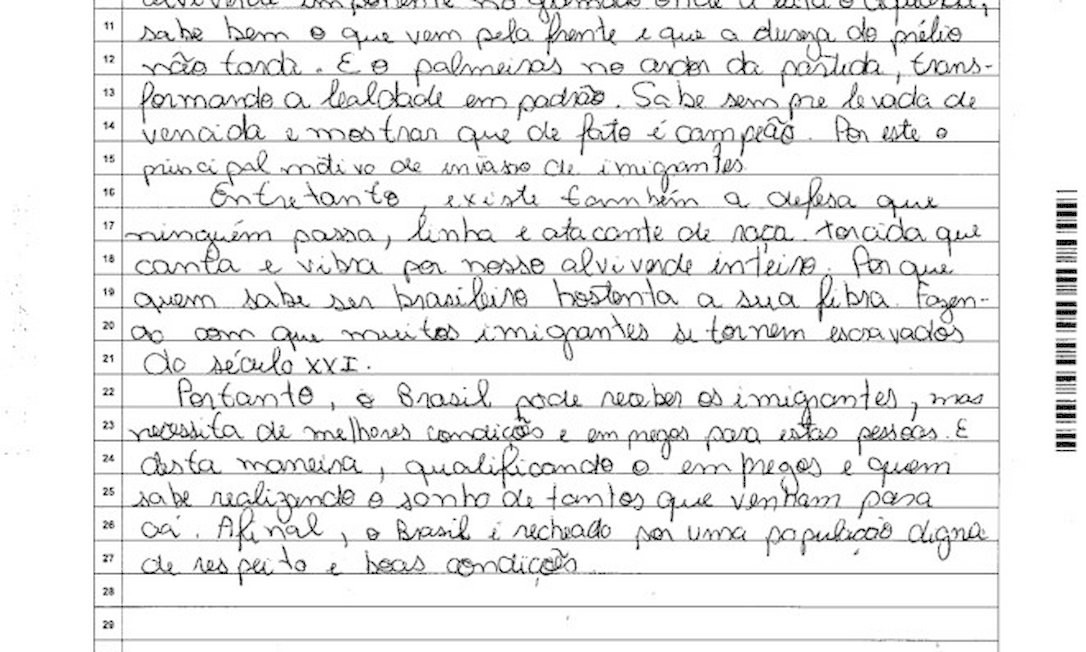 alviverde imponente no gramado onde a luta o aguarda,
11 sabe bem o que vem pela frente e que a dureza do prélio
12 não tarda. E o palmeiras no ardor da partida, trans-
13 formando a lealdade em padrão. Sabe sempre levada de
14 vencida e mostrar que de fato é campeão. Por este o
15 principal motivo de invasão de imigrantes
16 Entretanto, existe também a defesa que
17 ninguém passa, linha e atacante de raça. torcida que
18 canta e vibra por nosso alviverde inteiro. Por que
19 quem sabe ser brasileiro hostenta a sua fibra. Fazen-
20 do com que muitos imigrantes se tornem escravados
21 do século XVI.
22 Portanto, o Brasil pode receber os imigrantes, mas
23 necessita de melhores condições e empregos para estas pessoas. E
24 desta maneira, qualificando o empregos e quem
25 sabe realizando o sonho de tantos que venham para
26 cá. Afinal, o Brasil é recheado por uma população digna
27 de respeito e boas condições
28
29